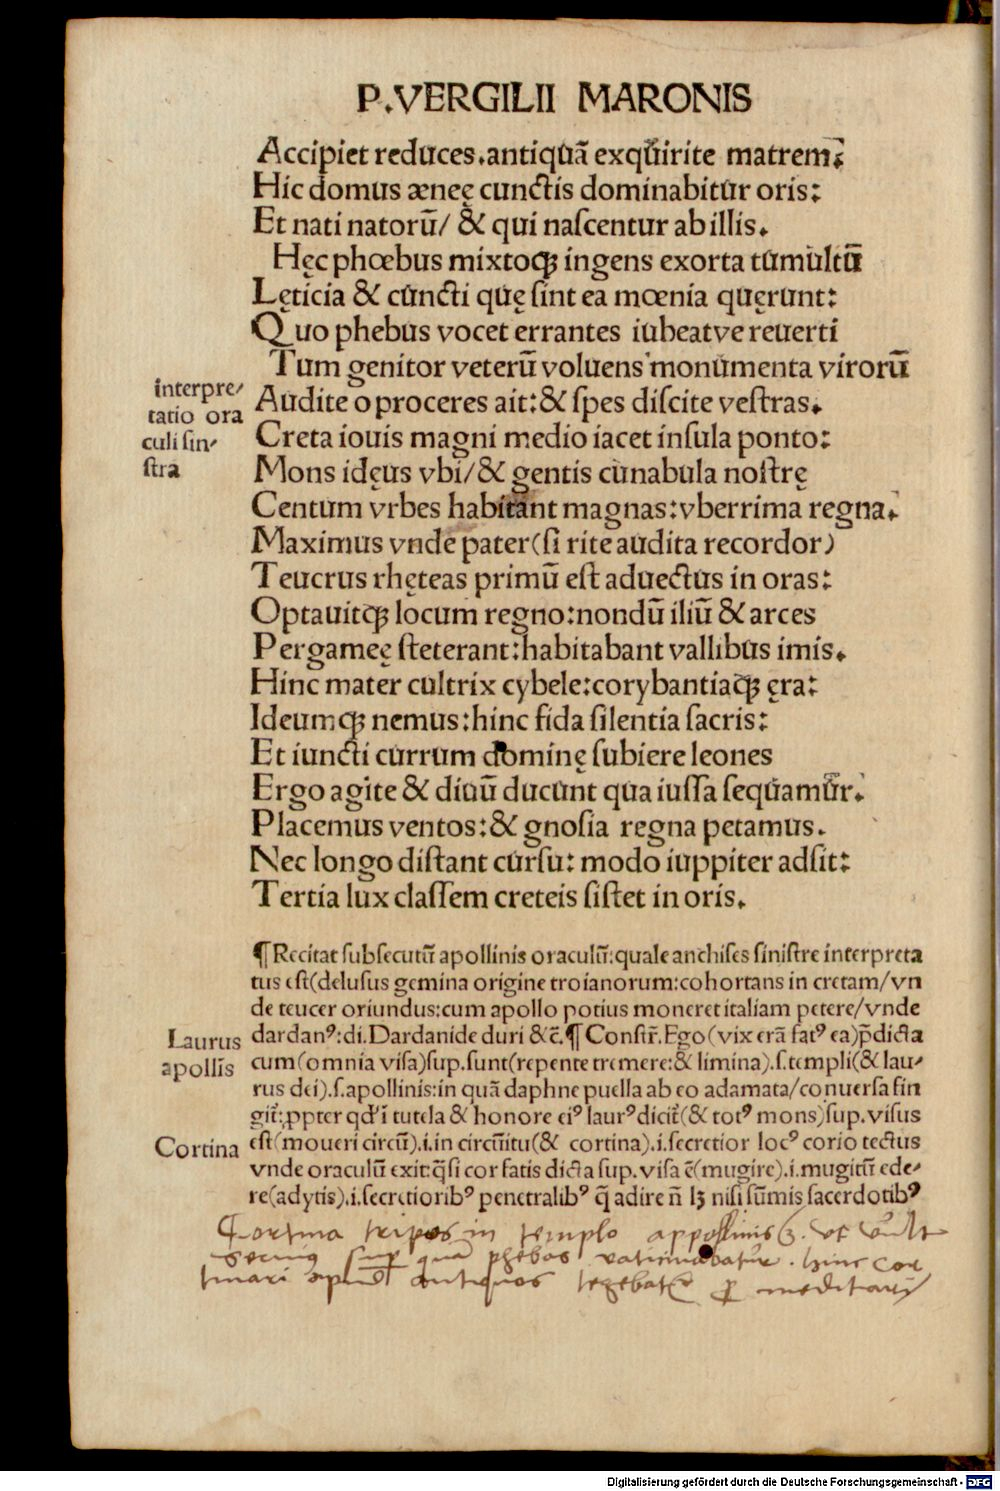 P.VERGILII MARONIS
Accipiet reduces.antiquā exquirite matrem:
Hic domus æneę cunctis dominabitur oris:
Et nati natorū/ & qui nascentur ab illis.
Hęc phœbus mixtoqꝫ ingens exorta tumultū
Lęticia & cuncti quę sint ea mœnia quęrunt:
Quo phebus vocet errantes iubeatve reuerti
Tum genitor veterū voluens monumenta virorū
interpre/
tatio ora
culi sin/
stra
Audite o proceres ait:& spes discite vestras.
Creta iouis magni medio iacet insula ponto:
Mons idęus vbi/& gentis cunabula nostrę
Centum vrbes habitant magnas:vberrima regna.
Maximus vnde pater(si rite audita recordor)
Teucrus rhęteas primū est aduectus in oras:
Optauitqꝫ locum regno:nondū iliū & arces
Pergameę steterant:habitabant vallibus imis.
Hinc mater cultrix cybele:corybantiaqꝫ ęra:
Ideumqꝫ nemus:hinc fida silentia sacris:
Et iuncti currum dominę subiere leones
Ergo agite & diuū ducunt qua iussa sequamur.
Placemus ventos:& gnosia regna petamus.
Nec longo distant cursu: modo iuppiter adsit:
Tertia lux classem creteis sistet in oris.
¶ Recitat subsecutū apollinis oraculū:quale anchises sinistre interpreta
tus est(delusus gemina origine troianorum:cohortans in cretam/vn
de teucer oriundus:cum apollo potius moneret italiam petere/vnde
dardanꝰ:di. Dardanide duri &c̄.¶ Constr̄. Ego(vix erā fatꝰ ea)p̄dicta
Laurus
apollīs
cum(omnia visa)sup.sunt(repente tremere:& limina).s.templi(& lau/
rus dei).s.apollinis:in quā daphne puella ab eo adamata/conuersa fin
git̄:ꝓpter qđ ī tutela & honore eiꝰ laurꝰ dicit̄(& totꝰ mons)sup.visus
Cortina
est(moueri circū).i.in circūitu(& cortina).i.secretior locꝰ corio tectus
vnde oraculū exit:q̄si cor fatis dicta sup.visa ē(mugire).i.mugitū ede/
re(adytis).i.secretioribꝰ penetralibꝰ q̄ adire n̄ lꝫ nisi sūmis sacerdotibꝰ
Cortina tripos in templo appollinis . vt vult
seruius super quā phebas vaticinabatur . hinc cor
tinari apud antiquos legebatur p meditari
Digitalisierung gefördert durch die Deutsche Forschungsgemeinschaft - DFG